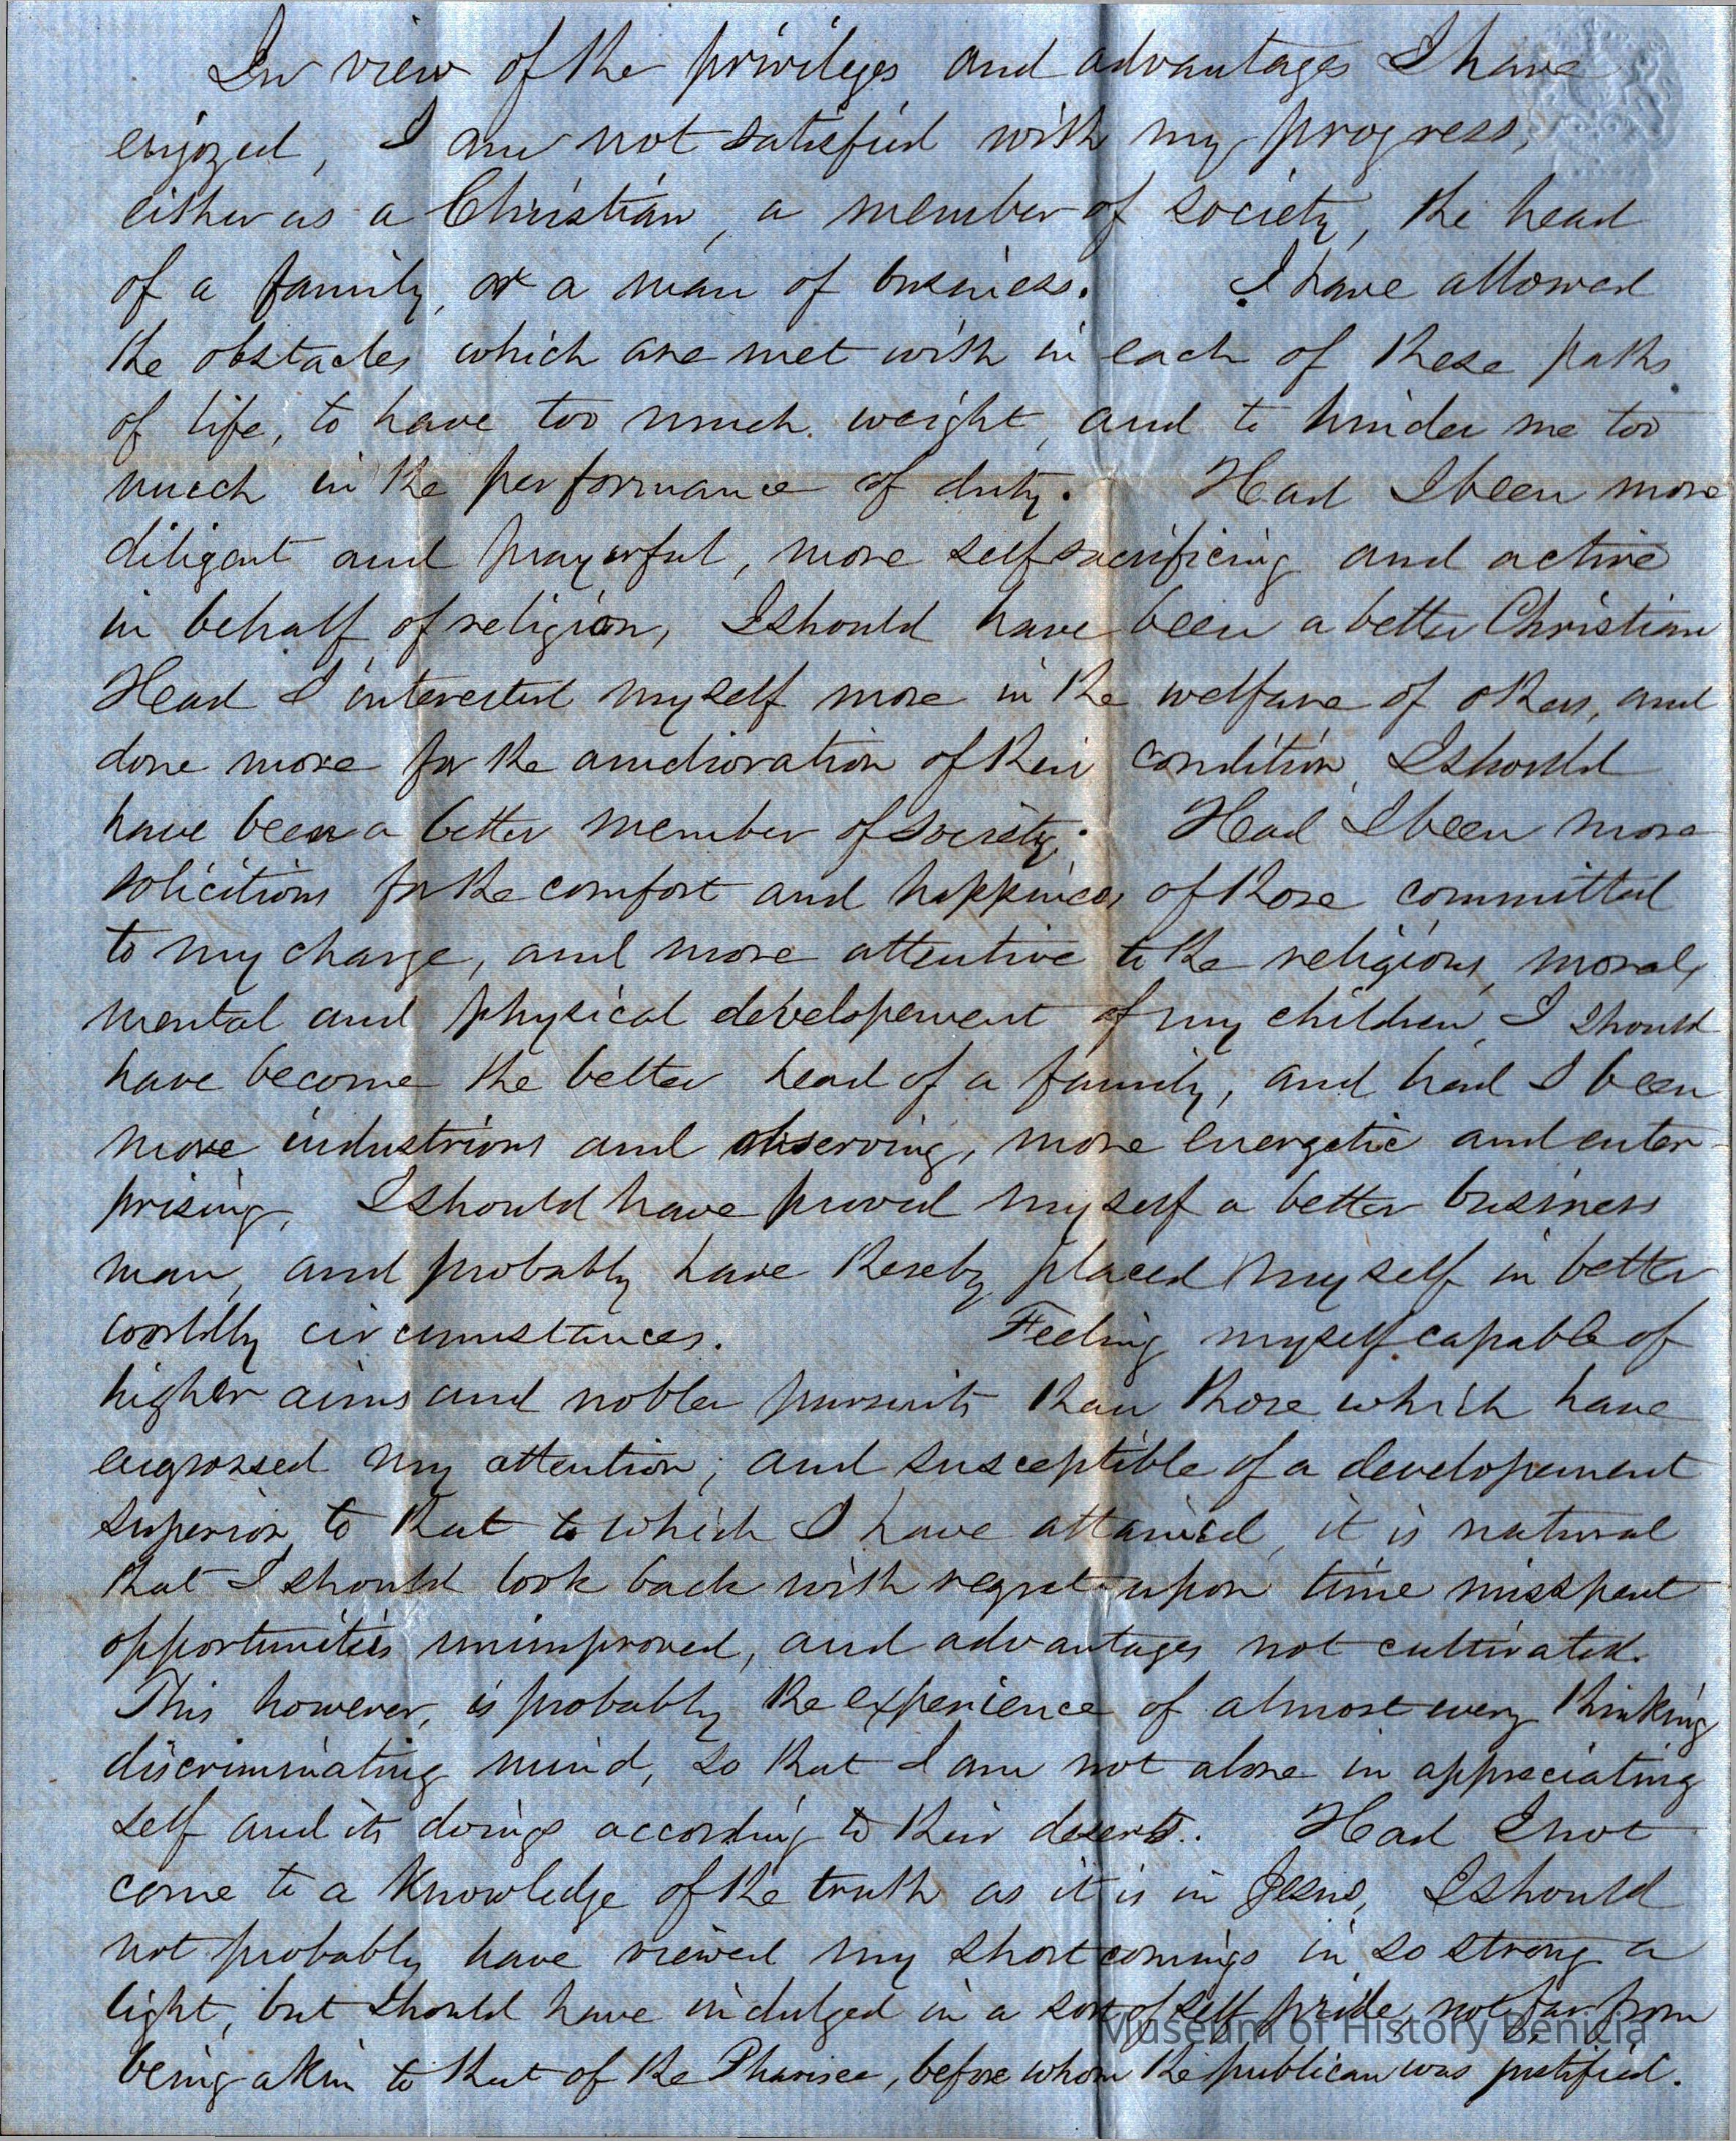 In view of the privileges and advantages I have
enjoyed, I am not satisfied with my progress,
either as a Christian, a member of society, the head
of a family, or a man of business. I have allowed
the obstacles which are met with in each of these paths
of life, to have too much weight, and to hinder me too
much in the performance of duty. Had I been more
diligent and prayerful, more self sacrificing and active
in behalf of religion, I should have been a better Christian
Had I interested myself more in the welfare of others, and
done more for the amelioration of their condition, I should
have been a better member of society. Had I been more
solicitious for the comfort and happiness of those committed
to my charge, and more attentive to the religious, moral,
mental and physical developement of my children, I should
have become the better head of a family, and had I been
more industrious and observing, more energetic and enter-
prising, I should have proved myself a better business
man, and probably have thereby placed myself in better
worldly circumstances. Feeling myself capable of
higher aims and nobler pursuits than those which have
engrossed my attention; and susceptible of a developement
superior to that to which I have attained, it is natural
that I should look back with regret upon time misspent
opportunities unimproved, and advantages not cultivated.
This however, is probably the experience of almost every thinking
discriminating mind, so that I am not alone in appreciating
self and its doings according to their deserts. Had I not
come to a knowledge of the truth as it is in Jesus, I should
not probably have viewed my short comings in so strong a
light, but should have indulged in a sort of self pride, not far from
being akin to that of the Pharisee, before whom the publican was justified.
Museum of History Benicia